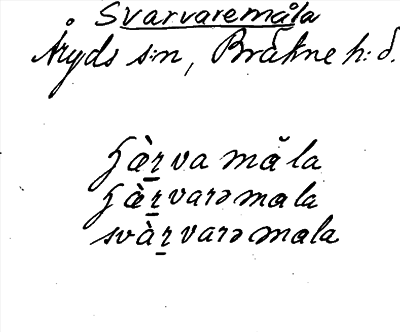 Svarvaremåla
Åryds s:n, Bräkne h:d.
hàr̲va måla
hàr̲varəmala
svàr̲varəmala